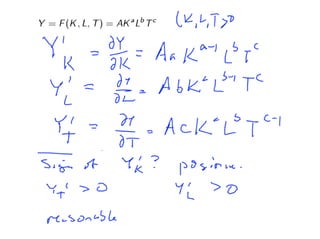 Y = F(K, L, T) = AKᵃLᵇTᶜ (K,L,T>0
Y'_K = ∂Y/∂K = A a K^{a-1} L^b T^c
Y'_L = ∂Y/∂L = A b K^a L^{b-1} T^c
Y'_T = ∂Y/∂T = A c K^a L^b T^{c-1}
Sign of Y'_K? positive.
Y'_T > 0 Y'_L > 0
reasonable